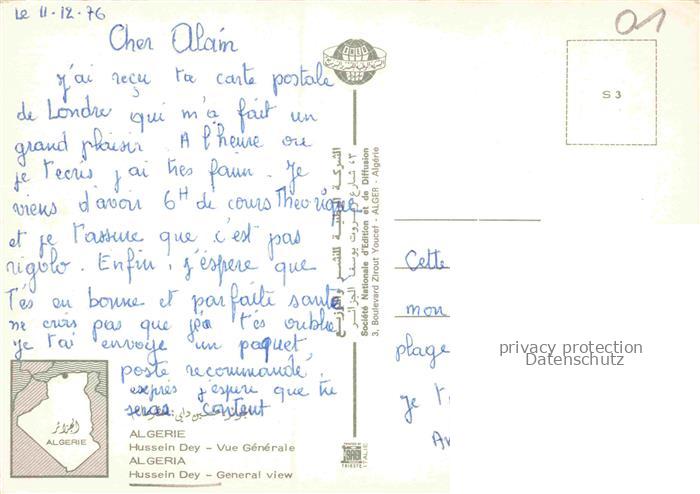 Le 11-12-76
01
Cher Alain
j'ai reçu ta carte postale
de Londre qui m'a fait un
grand plaisir. A l'heure ou
je t'ecris j'ai très faim. Je
viens d'avoir 6H de cours Theorique
et je t'assure que c'est pas
rigolo. Enfin, j'espere que
t'és en bonne et parfaite santé
ne crois pas que je t'és oublié
je t'ai envoyé un paquet
poste recommandé,
exprés j'espere que tu
seras content
S 3
الشركة الوطنية للنشر والتوزيع
٤٣ شارع زيروت يوسف الجزائر
Société Nationale d'Edition et de Diffusion
3, Boulevard Zirout Youcef - ALGER - Algérie
Cette
mon
plage
je t'
privacy protection
Datenschutz
الجزائر
ALGERIE
ALGERIE
Hussein Dey - Vue Générale
ALGERIA
Hussein Dey - General view
PRINTED BY
SAGI
TRIESTE
ITALIE